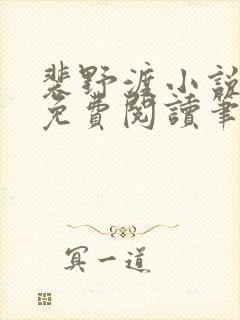 裴野渡小説
免費閱讀筆
冥一道